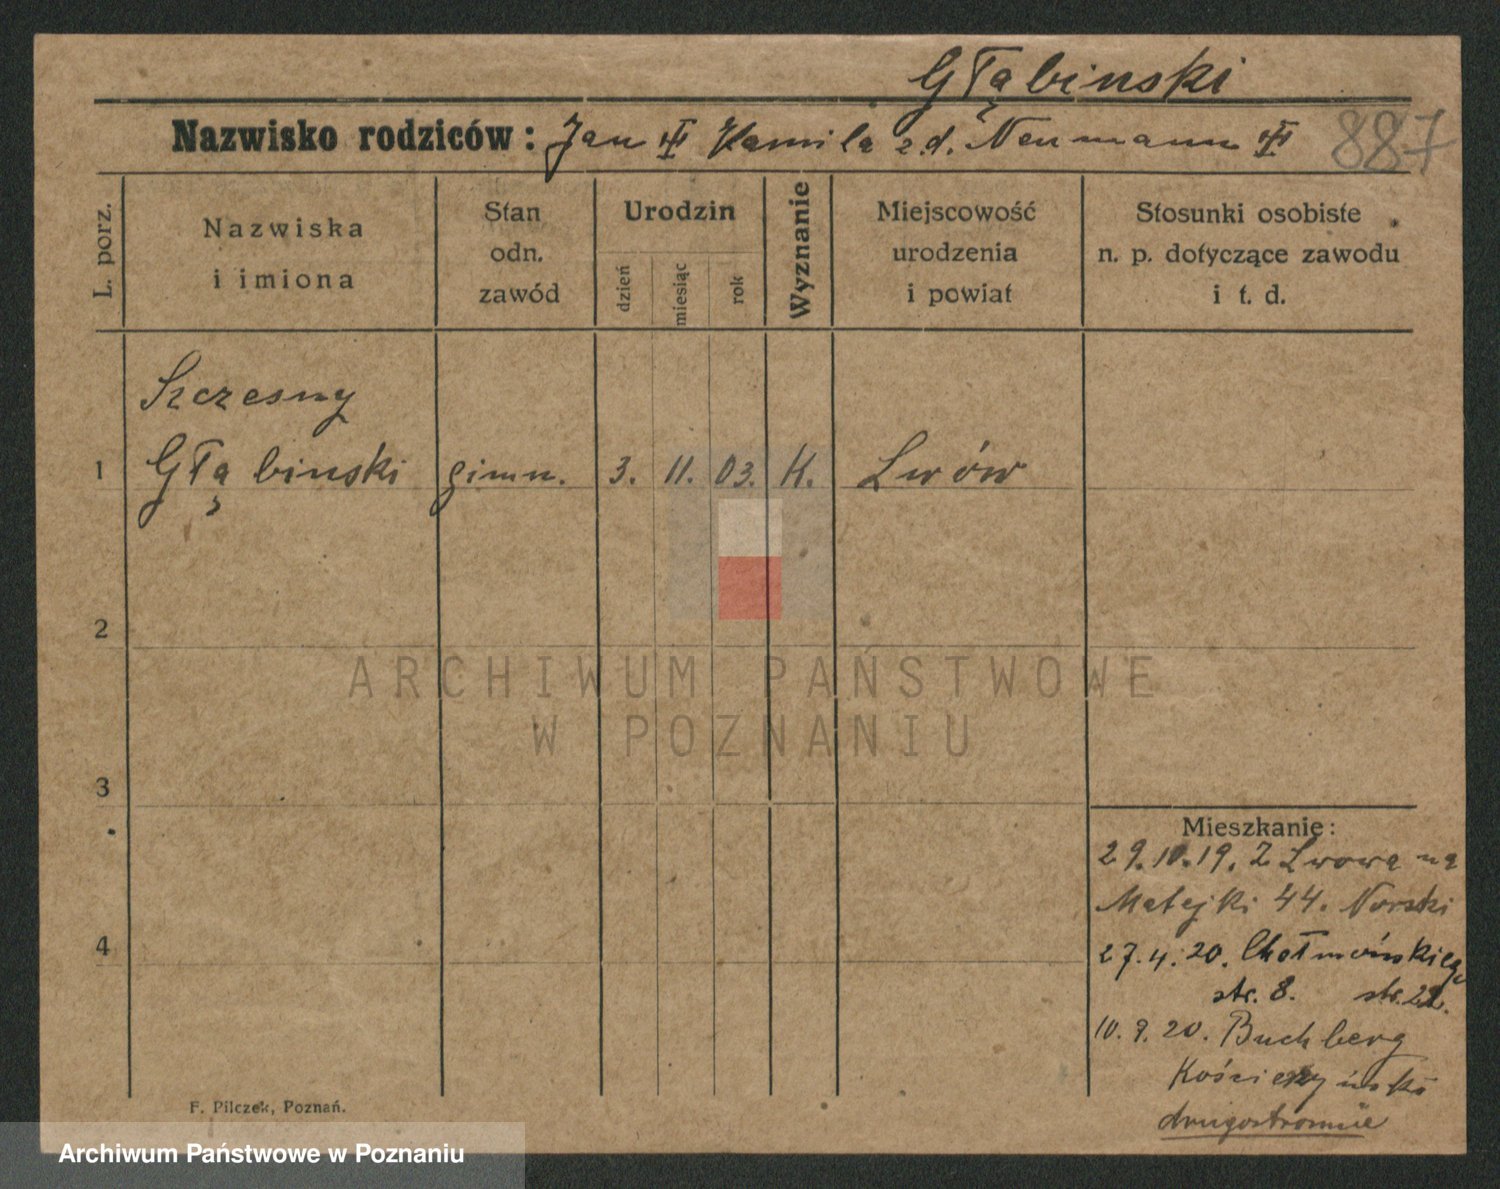 Głąbinski
Nazwisko rodziców: Jan Kamila z.d. Neumann 887
L. porz.
Nazwiska
i imiona
Stan
odn.
zawód
Urodzin
dzień
miesiąc
rok
Wyznanie
Miejscowość
urodzenia
i powiat
Stosunki osobiste
n. p. dotyczące zawodu
i t. d.
Szczesny
1 Głąbinski gimn. 3. 11. 03. K. Lwów
2
ARCHIWUM PAŃSTWOWE
W POZNANIU
3
Mieszkanie:
29.10.19. Z Lwowa na
Matejki 44. Norski
4
27.4.20. Chełmońskiego
str. 8. str. 22.
10.9.20. Buchberg
drugostronnie
F. Pilczek, Poznań.
Archiwum Państwowe w Poznaniu